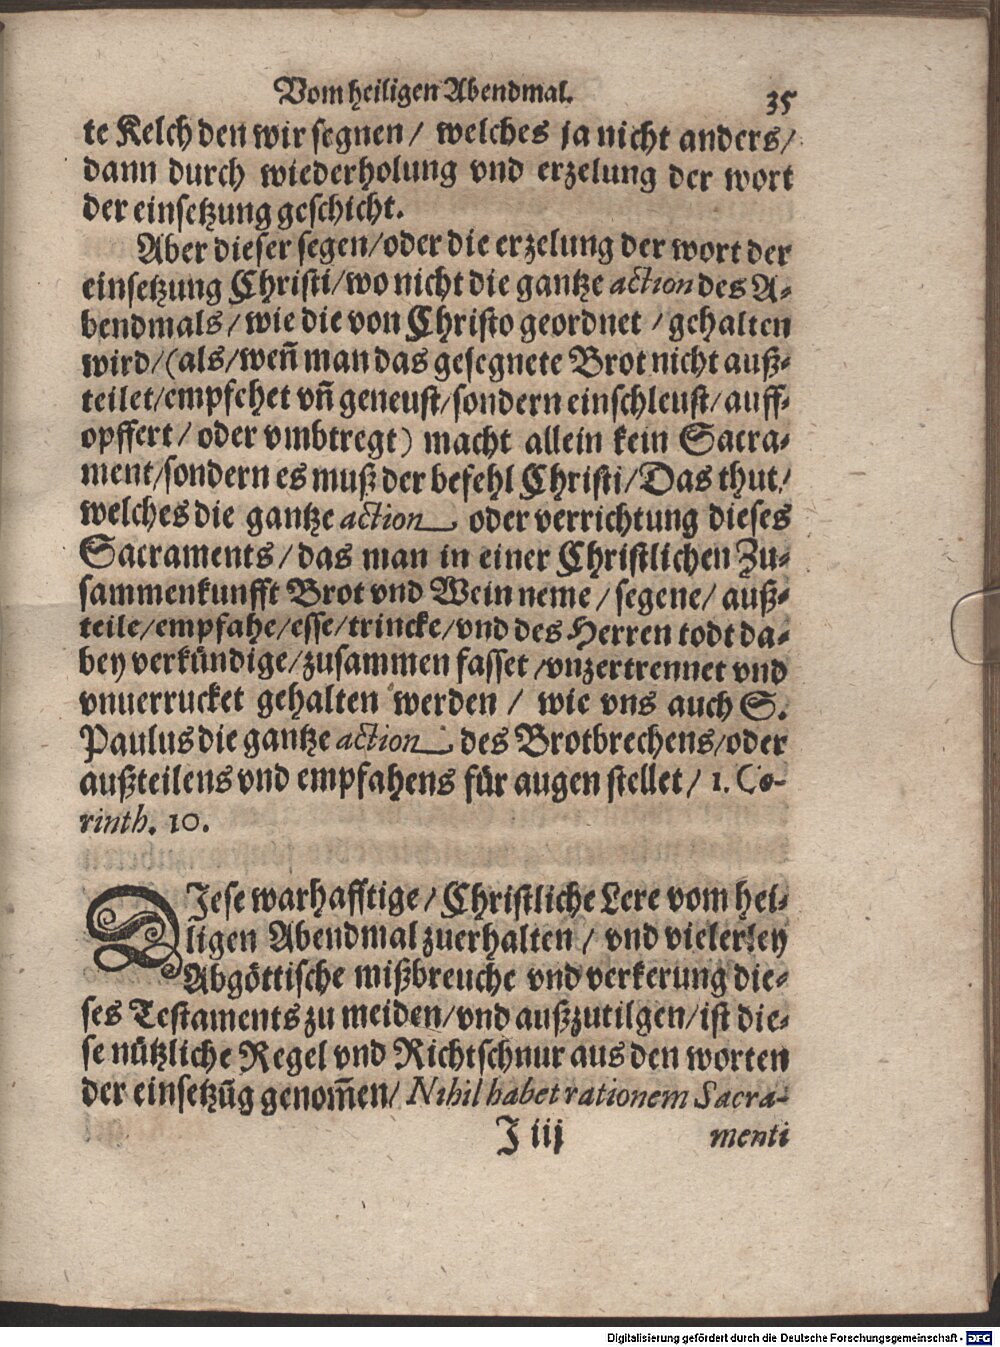 Vom heiligen Abendmal. 35
te Kelch den wir segnen / welches ja nicht anders /
dann durch wiederholung vnd erzelung der wort
der einsetzung geschicht.
Aber dieser segen / oder die erzelung der wort der
einsetzung Christi / wo nicht die gantze action des A⸗
bendmals / wie die von Christo geordnet / gehalten
wird / (als / weñ man das gesegnete Brot nicht auß⸗
teilet / empfehet vñ geneust / sondern einschleust / auff⸗
opffert / oder vmbtregt) macht allein kein Sacra⸗
ment / sondern es muß der befehl Christi / Das thut /
welches die gantze action oder verrichtung dieses
Sacraments / das man in einer Christlichen Zu⸗
sammenkunfft Brot vnd Wein neme / segene / auß⸗
teile / empfahe / esse / trincke / vnd des Herren todt da⸗
bey verkündige / zusammen fasset / vnzertrennet vnd
vnuerrucket gehalten werden / wie vns auch S.
Paulus die gantze action des Brotbrechens / oder
außteilens vnd empfahens für augen stellet / 1. Co-
rinth. 10.
DIese warhafftige / Christliche Lere vom hei⸗
ligen Abendmal zuerhalten / vnd vielerley
Abgöttische mißbreuche vnd verkerung die⸗
ses Testaments zu meiden / vnd außzutilgen / ist die⸗
se nützliche Regel vnd Richtschnur aus den worten
der einsetzũg genom̃en / Nihil habet rationem Sacra-
J iij menti
Digitalisierung gefördert durch die Deutsche Forschungsgemeinschaft - DFG